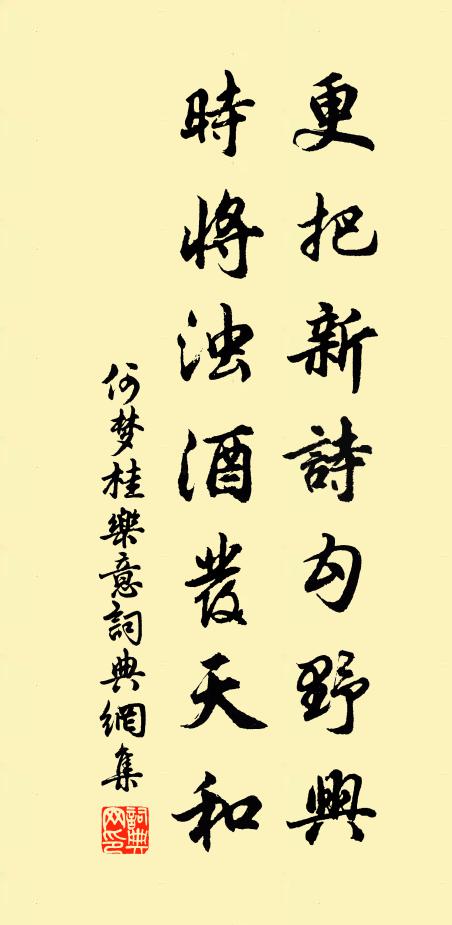 更把新詩勾野興
時將浊酒發天和
何梦桂樂意詞典網集
詞典网印